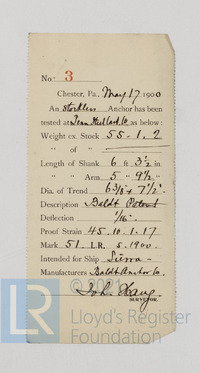 No. 3
Chester, Pa., May 17 1900
An Stockless Anchor has been
tested at Penn Steel Cast Co as below:
Weight ex. Stock 55-1.2
" of " -
Length of Shank 6 ft 3½ in
" " Arm 5 " 9½ "
Dia. of Trend 6⅜ x 7½"
Description Baldt Patent
Deflection 1/16"
Proof Strain 45.10.1.17
Mark 51. L.R. 5.1900.
Intended for Ship Sierra -
Manufacturers Baldt Anchor Co.
John Haug
SURVEYOR.
LR
Lloyd's Register
Foundation